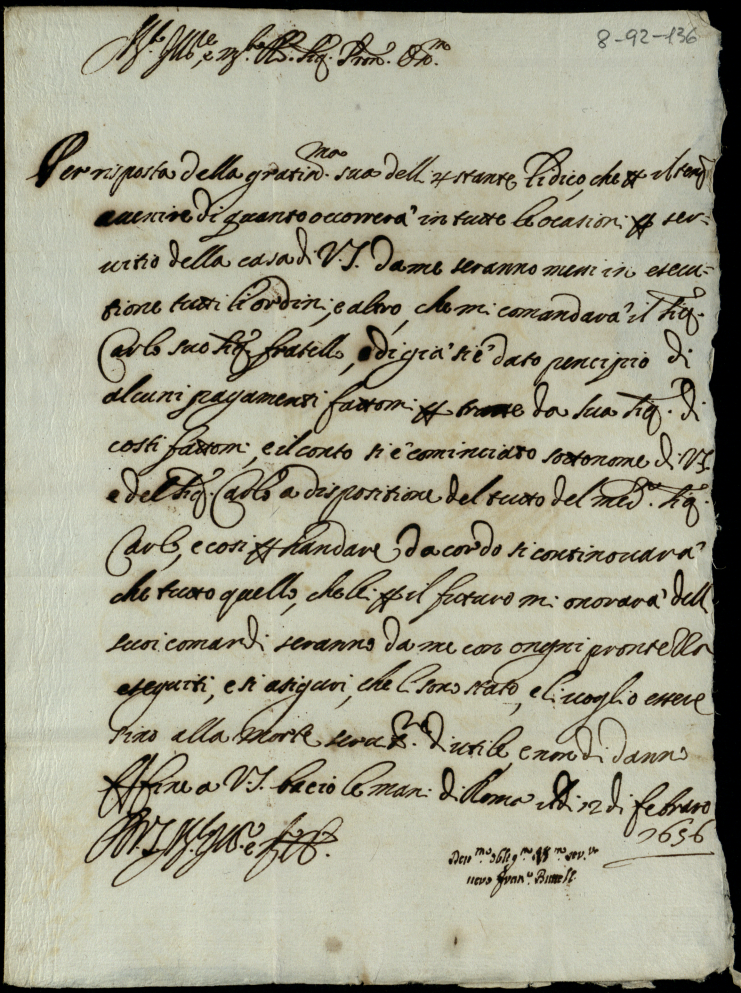 8-92-136
Per risposta della gratiss.ma sua dell 4 stante li dico, che
avenire di quanto occorrerà in tutte le ocasioni ser-
vitio della casa di V.S. da me seranno messi in esecu-
tione tutti li ordini, e altro, che mi comandarà il Sig.r
Carlo suo Sig.r fratello, e di già si è dato principio di
alcuni pagamenti fattomi tratte da sua Sig. di
costi fattomi, e il conto si è cominciato sotto nome di V.S.
e del Sig.r Carlo a dispositione del tutto del med.o Sig.r
Carlo, e cosi andare d acordo si continovarà
che tutto quello, che lei il futuro mi onorarà dell
suoi comandi seranno da me con ongni prontezza
eseguiti, e si asiguri, che li sono stato, e li voglio essere
sino alla morte di utile, e non di danno
fine a V.S. bacio le mani di Roma li 12 di febraro
1656